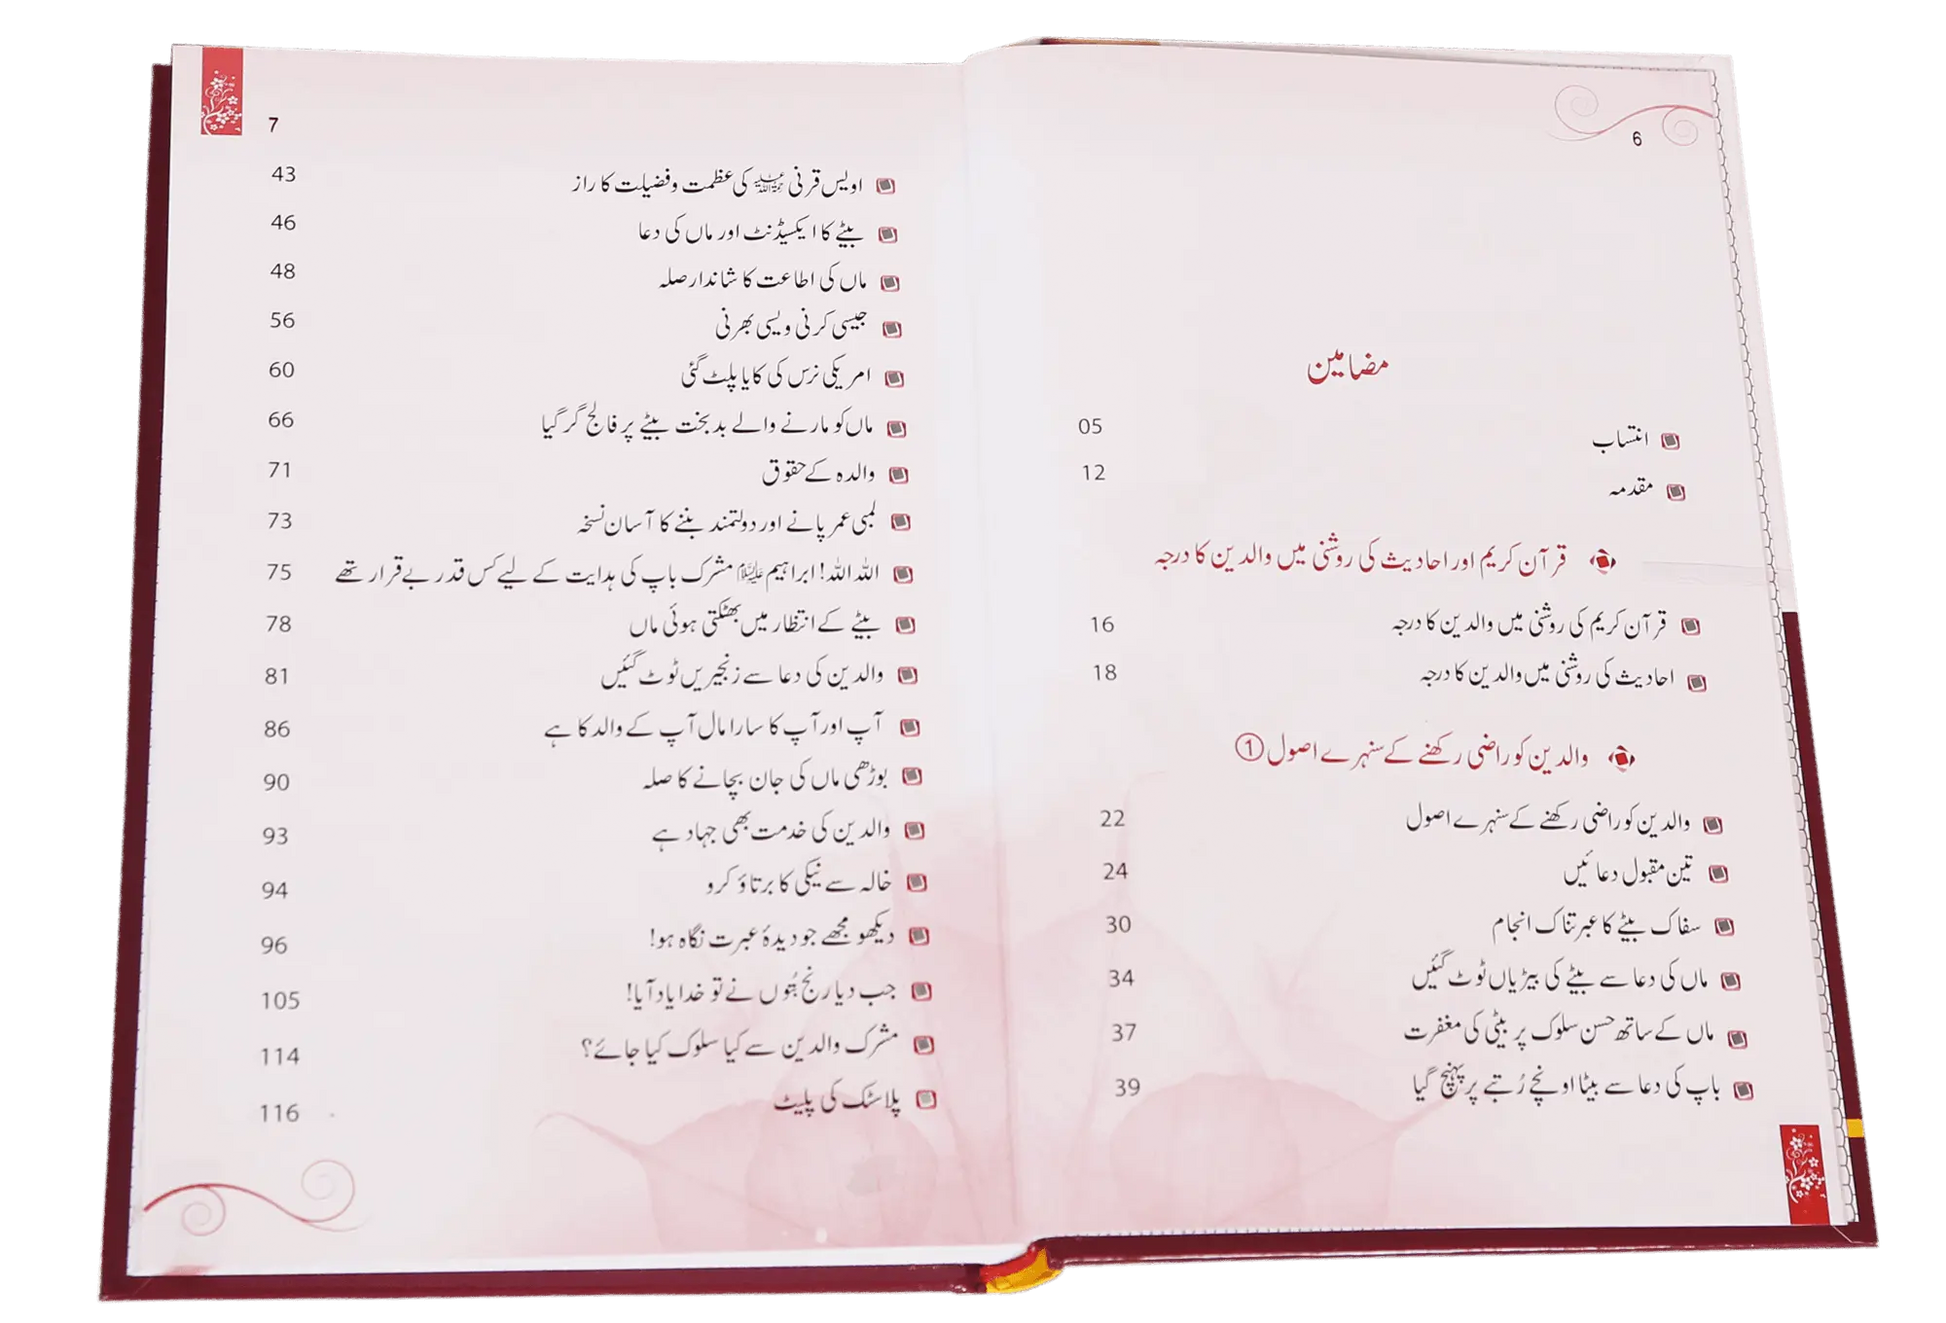 6
مضامین
انتساب 05
مقدمہ 12
قرآن کریم اور احادیث کی روشنی میں والدین کا درجہ
قرآن کریم کی روشنی میں والدین کا درجہ 16
احادیث کی روشنی میں والدین کا درجہ 18
والدین کو راضی رکھنے کے سنہرے اصول ①
والدین کو راضی رکھنے کے سنہرے اصول 22
تین مقبول دعائیں 24
سفاک بیٹے کا عبرتناک انجام 30
ماں کی دعا سے بیٹے کی بیڑیاں ٹوٹ گئیں 34
ماں کے ساتھ حسن سلوک پر بیٹی کی مغفرت 37
باپ کی دعا سے بیٹا اونچے رُتبے پر پہنچ گیا 39
7
اویس قرنی رحمۃ اللہ علیہ کی عظمت و فضیلت کا راز 43
بیٹے کا ایکسیڈنٹ اور ماں کی دعا 46
ماں کی اطاعت کا شاندار صلہ 48
جیسی کرنی ویسی بھرنی 56
امریکی نرس کی کایا پلٹ گئی 60
ماں کو مارنے والے بدبخت بیٹے پر فالج گر گیا 66
والدہ کے حقوق 71
لمبی عمر پانے اور دولتمند بننے کا آسان نسخہ 73
اللہ اللہ! ابراہیم علیہ السلام مشرک باپ کی ہدایت کے لیے کس قدر بے قرار تھے 75
بیٹے کے انتظار میں بھٹکتی ہوئی ماں 78
والدین کی دعا سے زنجیریں ٹوٹ گئیں 81
آپ اور آپ کا سارا مال آپ کے والد کا ہے 86
بوڑھی ماں کی جان بچانے کا صلہ 90
والدین کی خدمت بھی جہاد ہے 93
خالہ سے نیکی کا برتاؤ کرو 94
دیکھو مجھے جو دیدۂ عبرت نگاہ ہو! 96
جب دیا رنج بُتوں نے تو خدا یاد آیا! 105
مشرک والدین سے کیا سلوک کیا جائے؟ 114
پلاسٹک کی پلیٹ 116